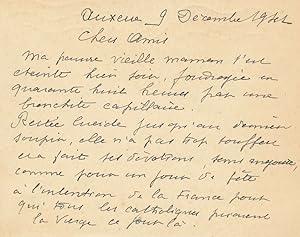 9 Décembre 1941
Chers Amis
Ma pauvre vieille maman s'est
éteinte hier soir, foudroyée en
quarante huit heures par une
bronchite capillaire.
Restée lucide jusqu'au dernier
soupir, elle n'a pas trop souffert
et a fait ses dévotions, sans
comme pour un jour de fête
à l'intention de la France pour
qui tous les catholiques
la Vierge ce jour là.